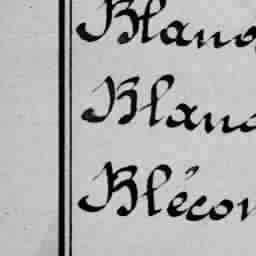 Blanc
Blanc
Blécon